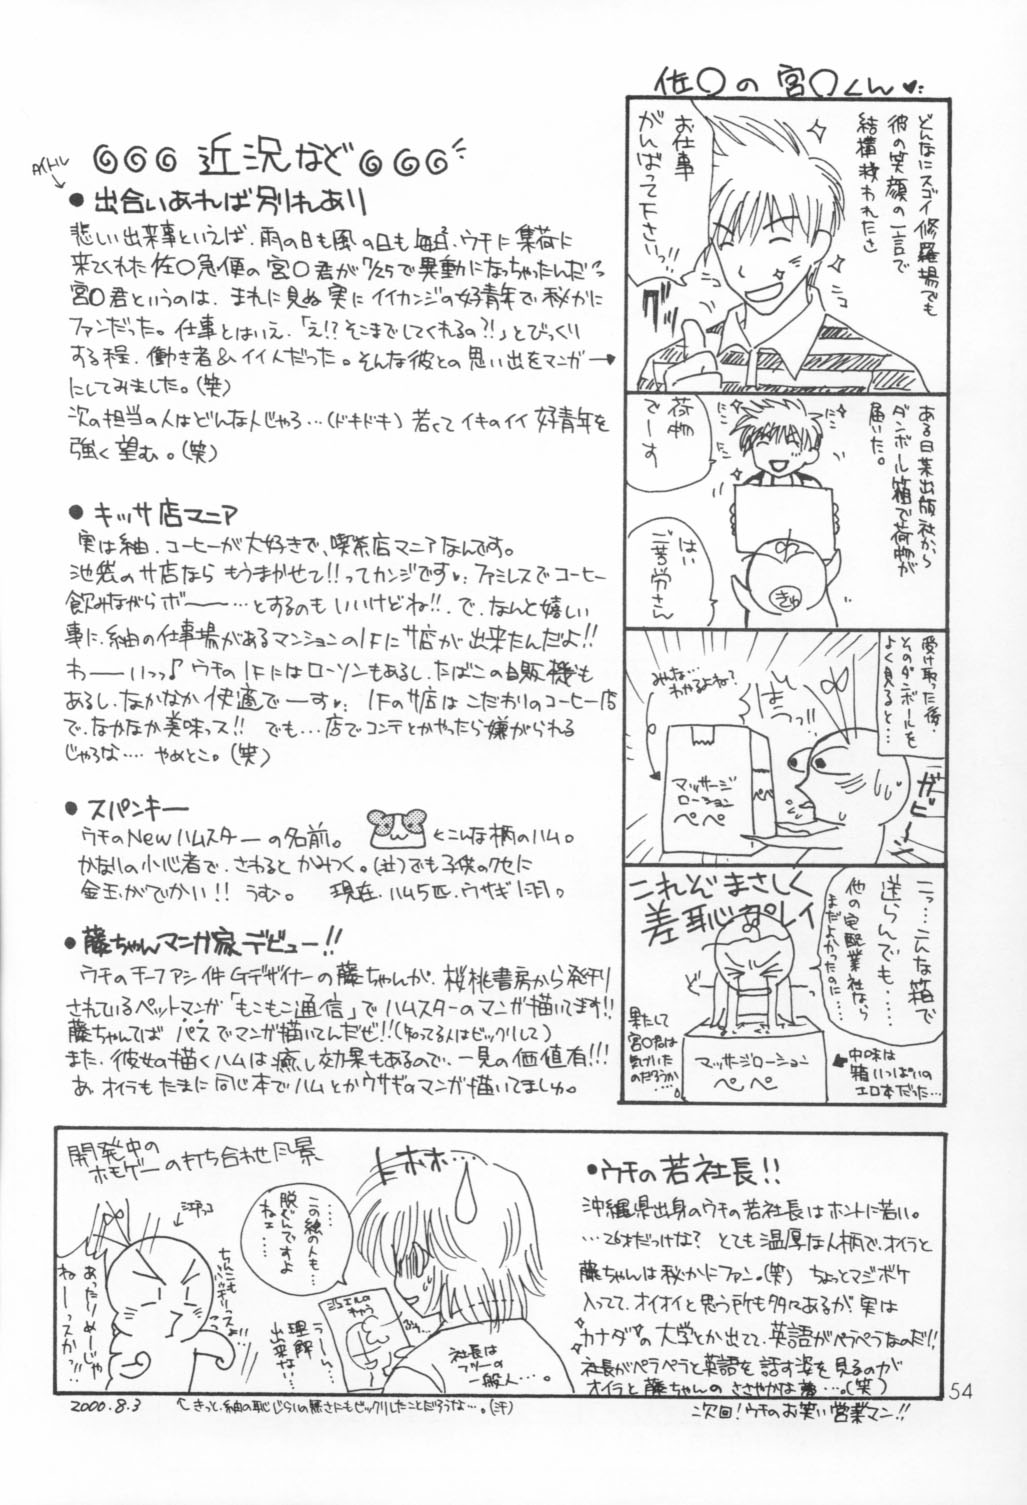 佐〇の宮〇くん♥
どんなにスゴイ修羅場でも
彼の笑顔の一言で
結構救われたさ
お仕事
がんばって下さいっ!!
グッ
ある日某出版社から
ダンボール箱で荷物が
届いた。
荷物
でーす
はい
ご苦労さん
受け取った後、
そのダンボールを
よく見ると…
みんな…
わかるよね?
はっ!!
マッサージ
ローション
ペペ
こっ…こんな箱で
送らんでも…
他の宅配業社なら
まだよかったのに…
これぞまさしく
羞恥プレイ
果たして
宮〇君は
気付いた
のだろうか
……。
マッサージローション
ペペ
中味は
箱いっぱいの
エロ本だった…
◎◎◎ 近況など ◎◎◎
タイトル
● 出合いあれば別れあり
悲しい出来事といえば、雨の日も風の日も毎日、ウチに集荷に
来てくれた佐〇急便の宮〇君が7/25で異動になっちゃったんだっ
宮〇君というのは、まれに見ぬ実にイイカンジの好青年で秘かに
ファンだった。仕事とはいえ、「え!?そこまでしてくれるの?!」とびっくり
する程、働き者&イイ人だった。そんな彼との思い出をマンガ→
にしてみました。(笑)
次の担当の人はどんな人じゃろ…(ドキドキ)若くてイキのイイ好青年を
強く望む。(笑)
● キッサ店マニア
実は紬、コーヒーが大好きで、喫茶店マニアなんです。
池袋のサ店なら もうまかせて!!ってカンジです♥ ファミレスでコーヒー
飲みながらボーー…とするのもいいけどね!!、で、なんと嬉しい
事に、紬の仕事場があるマンションの1Fにサ店が出来たんだよ!!
わーーいっっ♪ ウチの1Fにはローソンもあるし、たばこの自販機も
あるし、なかなか快適でーす♥ 1Fのサ店はこだわりのコーヒー店
で、なかなか美味っス!! でも…店でコンテとかやったら嫌がられる
じゃろな…。やめとこ。(笑)
● スパンキー
ウチのNewハムスターの名前。 ←こんな柄のハム。
かなりの小心者で、さわるとかみつく。(泣)でも子供のクセに
金玉がでかい!! うむ。 現在、ハム5匹、ウサギ1羽。
● 藤ちゃんマンガ家デビュー!!
ウチのチーフアシ件Gデザイナーの藤ちゃんが、桜桃書房から発刊
されているペットマンガ「もこもこ通信」でハムスターのマンガ描いてます!!
藤ちゃんてば パスでマンガ描いてんだぜ!!(知ってる人はビックリして)
また、彼女の描くハムは癒し効果もあるので、一見の価値有!!!
あ、オイラもたまに同じ本でハムとかウサギのマンガ描いてましゅ。
開発中の
ホモゲーの打ち合わせ風景
トホホ…
この絵の人も…
脱ぐんですよ
ねェ…
あったりめーじゃ
ねーっスかっ!!
理解
出来ない
うーん
社長は
フツーの
一般人…。
● ウチの若社長!!
沖縄県出身のウチの若社長はホントに若い。
…26才だっけな? とても温厚な人柄で、オイラと
藤ちゃんは秘かにファン。(笑) ちょっとマジボケ
入ってて、オイオイと思う所も多々あるが、実は
カナダの大学とか出てて、英語がペラペラなのだ!!
社長がペラペラと英語を話す姿を見るのが
オイラと藤ちゃんのささやかな夢…。(笑)
2000.8.3
↖きっと、紬の恥じらいの無さにもビックリしたことだろうな…。(汗)
次回!ウチのお笑い営業マン!!
54